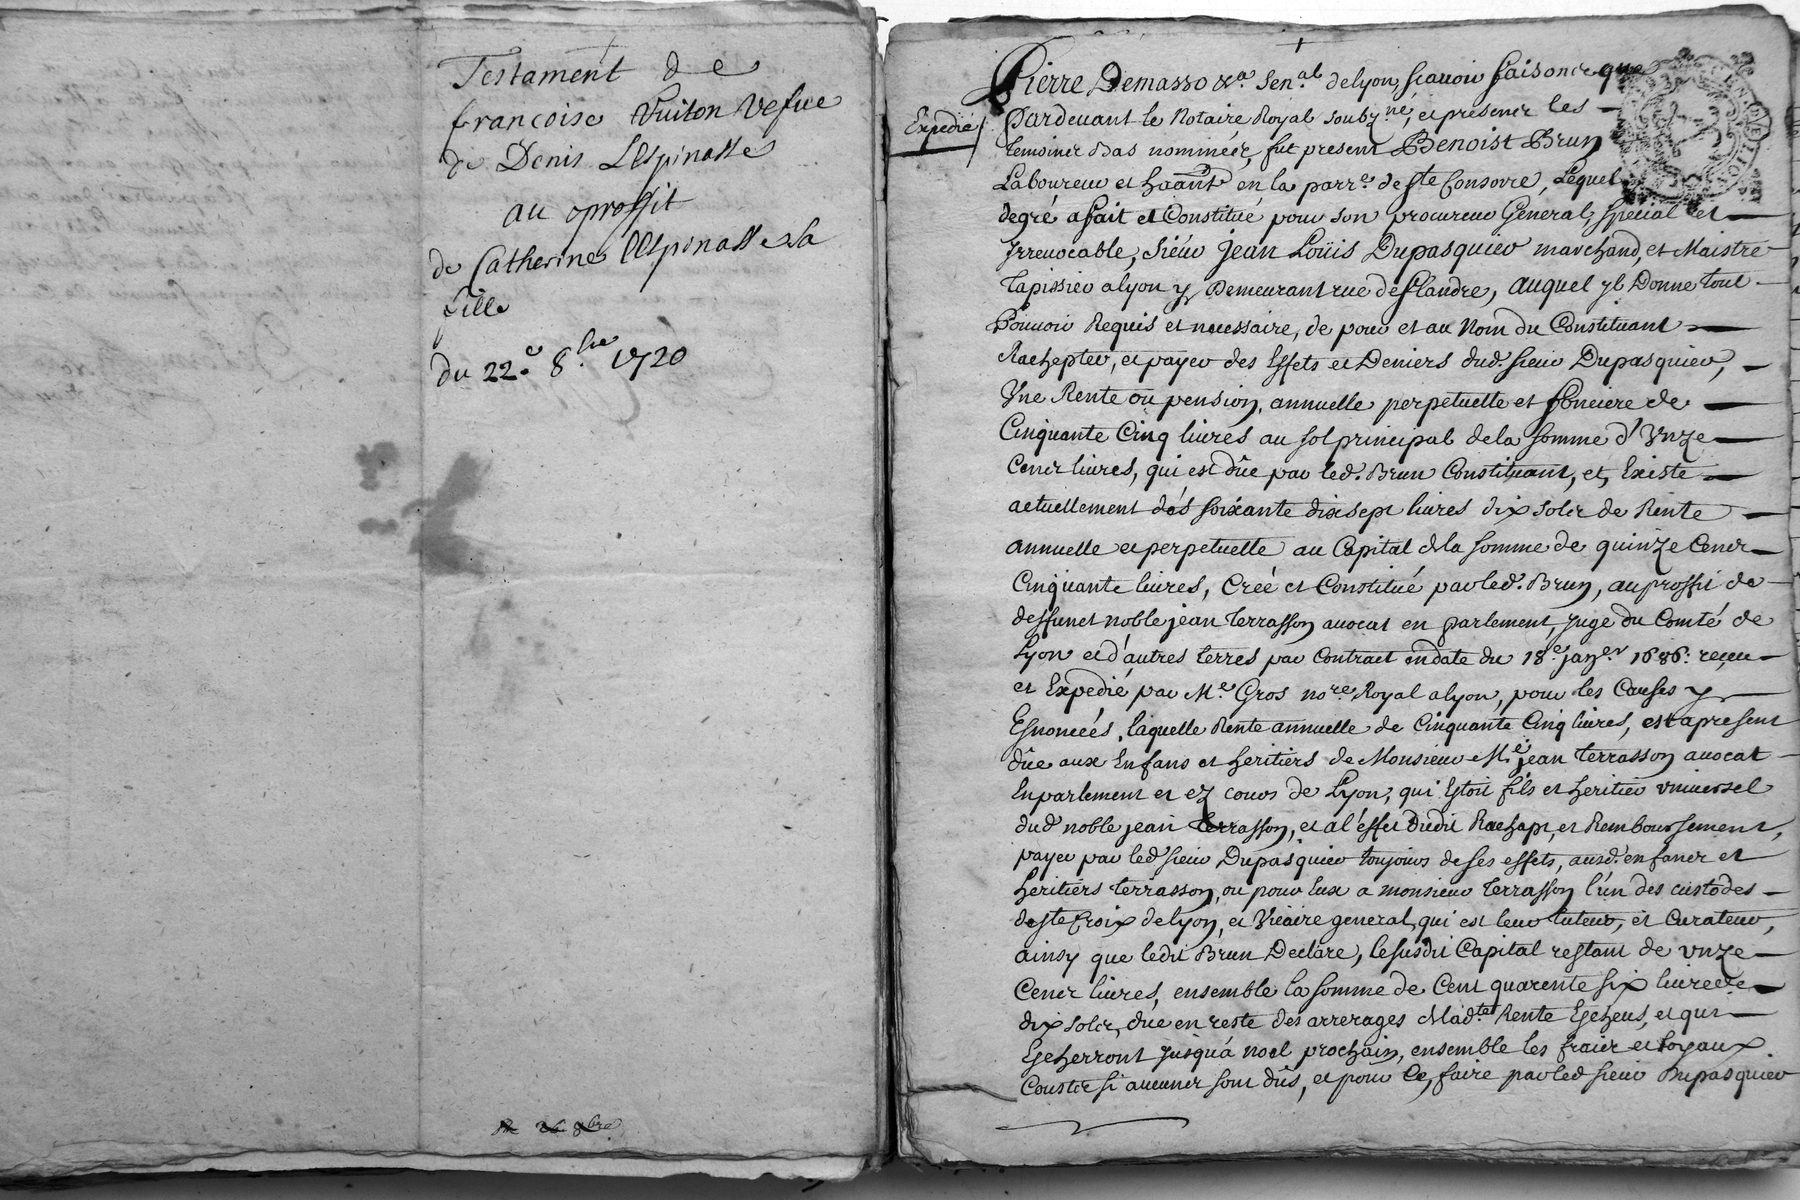 Testament de
francoise Vuiton Vefue
de Denis LEspinasse
au proffit
de Catherine LEspinasse sa
fille
du 22.e 8.bre 1720
Pierre Demasso &.a Sen.al de lyon sçauoir faisons que
Expedié
Pardeuant le Notaire Royal soubz.né, et presence les
temoines bas nommées, fut present Benoist Brun
Laboureur et haânt en la parr.e de Ste Consorce, Lequel
degré a fait et Constitué pour son procureur General, special et
Irreuocable, sieur jean Loüis Dupasquier marchand, et Maistre
Tapissier a lyon y Demeurant rue de flandre, auquel yl Donne tout
Pouuoir Requis et necessaire, de pour et au Nom du Constituant
Rachepter, et payer des Effets et Deniers dud. sieur Dupasquier,
Vne Rente ou pension, annuelle perpetuelle et fonciere de
Cinquante Cinq liures au sol principal de la somme d'Vnze
Cents liures, qui est dûe par led. Brun Constituant, et, Existe
actuellement des soixante dix sept liures dix sols de Rente
annuelle et perpetuelle au Capital de la somme de quinze Cents
Cinquante liures, Créé et Constitué par led. Brun, au proffit de
deffunct noble jean Terrasson auocat en parlement, juge du Comté de
Lyon et d'autres terres par Contract en date du 18.e jan.er 1686: reçeu
et Expedié par M.e Gros no.re Royal a lyon, pour les Causes y
Esnoncées, laquelle Rente annuelle de Cinquante Cinq liures, est a present
dûe aux Enfans et heritiers de Monsieur M.e jean Terrasson auocat
En parlement et ez cours de Lyon, qui Estoit fils et heritier vniuersel
dud noble jean Terrasson, et a l'effet dudit Rachapt, et Remboursement,
payer par led sieur Dupasquier toujours de ses effets, ausd. enfants et
heritiers terrasson, ou pour Eux a monsieur Terrasson l'un des custodes
de ste Croix de lyon, et Vicaire general, qui est leur tuteur, et Curateur,
ainsy que ledit Brun Declare, le susdit Capital restant de vnze
Cents liures, ensemble la somme de Cent quarente six liures
dix sols, düe en reste des arrerages de lad.te Rente Escheus, et qui
Escherront jusqu'a noel prochain, ensemble les fraix et loyaux
Cousts si aucuns sont dûs, et pour Ce, faire par led sieur Dupasquier